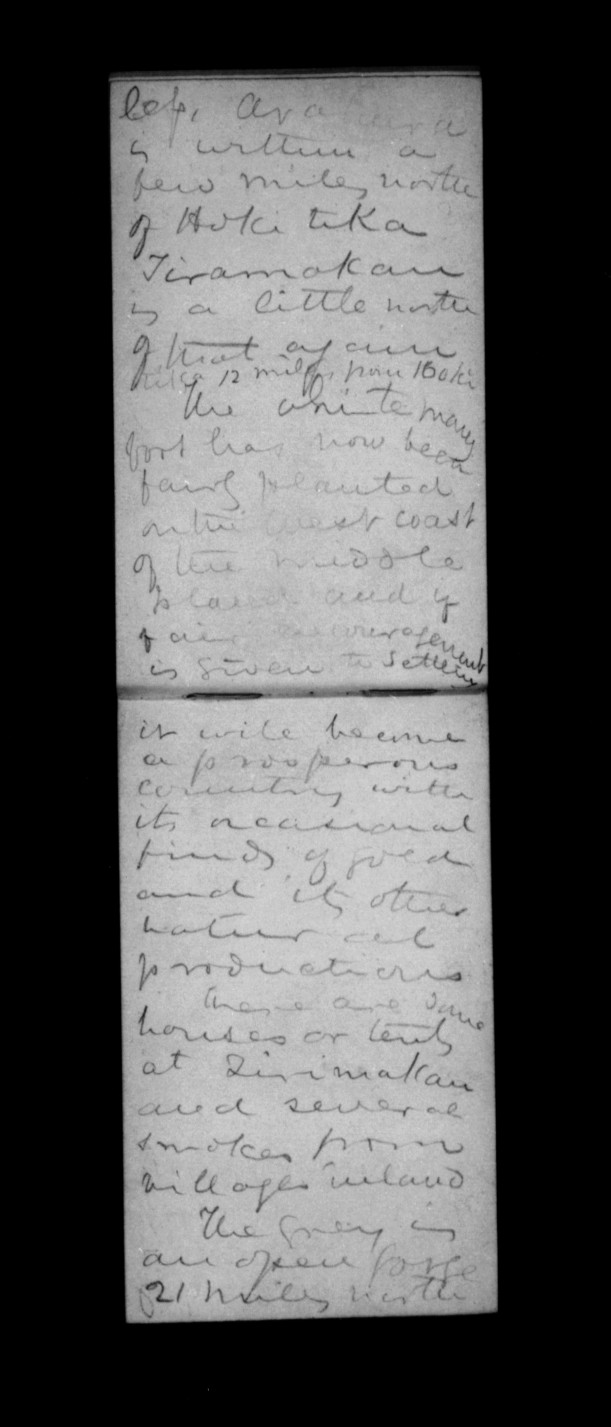 left, Arahura
is within a
few miles north
of Hokitika
Tiramakau
is a little north
of that again
12 miles from Hoki
tika
The white mans
foot has now been
fairly planted
on the West coast
of the Middle
Island and if
fair encouragement
is given to settlers
it will become
a prosperous
country with
its occasional
finds of gold
and its other
natural
productions
There are some
houses or tents
at Tirimakau
and several
smokes from
villages inland
The Grey is
an open gorge
21 miles north